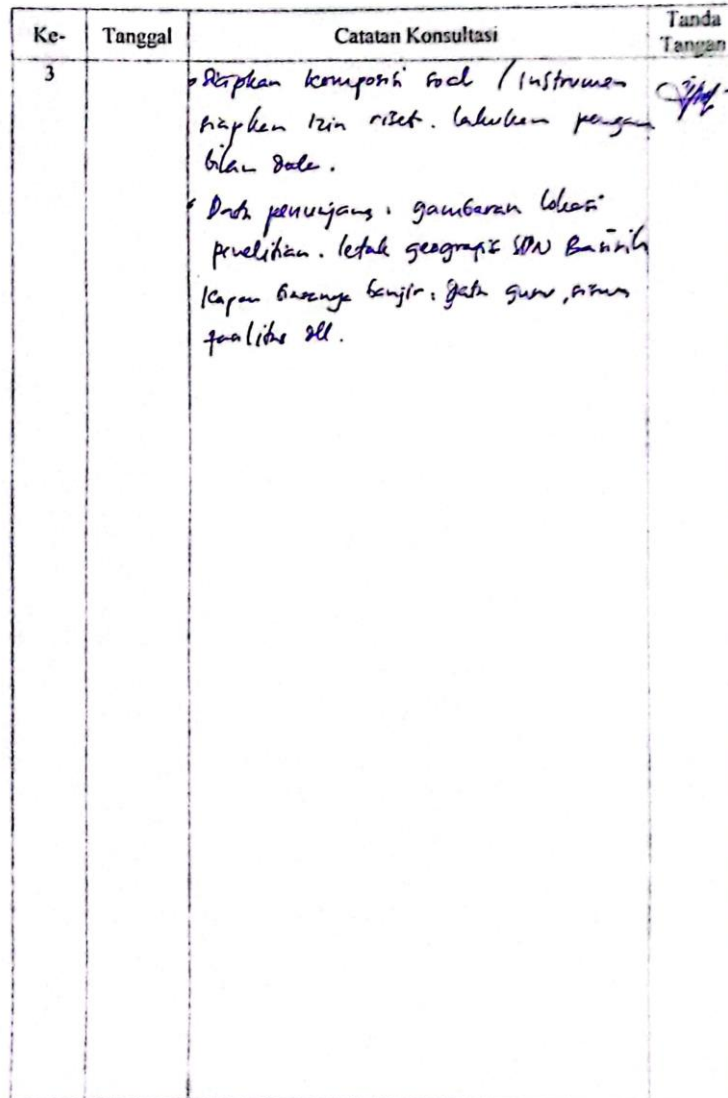 Ke- Tanggal Catatan Konsultasi Tanda Tangan
3 Siapkan komposisi soal / Instrumen
siapkan izin riset. lakukan pengam
bilan data.
Data penunjang : gambaran lokasi
penelitian. letak geografis SDN Basirih
kapan biasanya banjir, data guru, siswa
fasilitas dll.